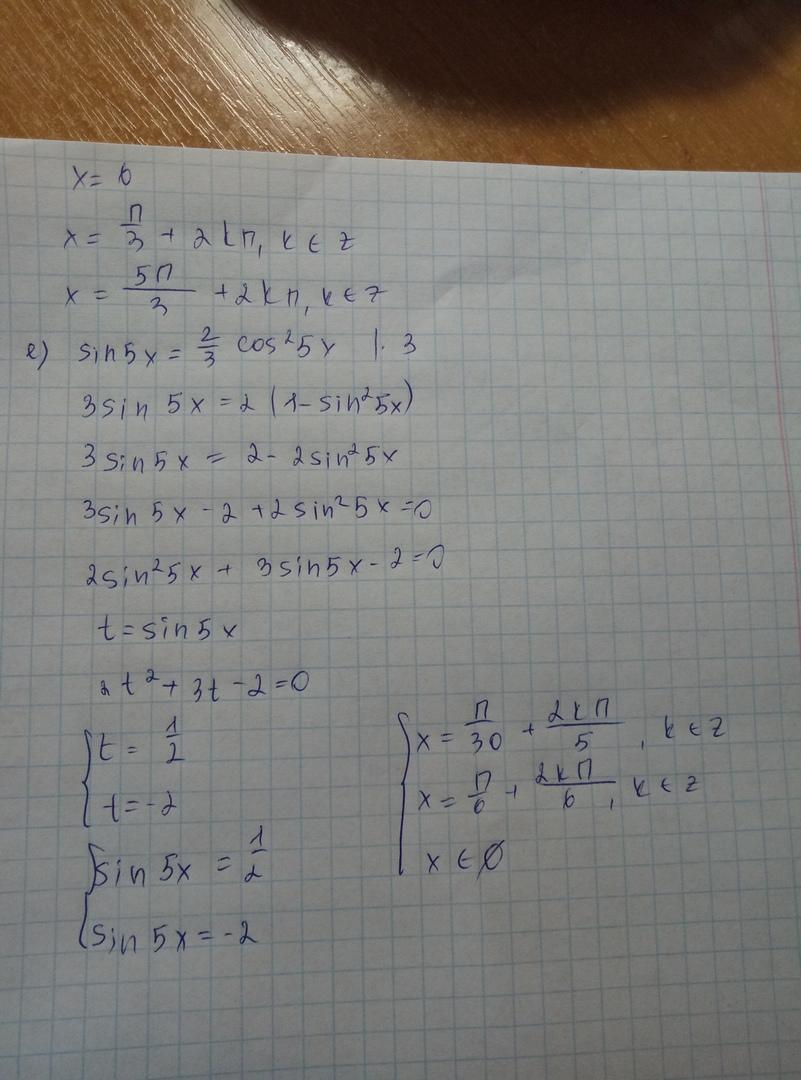 x= 6
x = П/3 + 2kП, k ∈ z
x = 5П/3 +2kП, k∈z
e) sin5x = 2/3 cos²5x |· 3
3sin 5x = 2 (1-sin²5x)
3 sin5x = 2- 2sin²5x
3sin 5x -2 +2sin²5x =0
2sin²5x + 3sin5x - 2=0
t=sin5x
2t²+3t-2=0
{ t = 1/2
t=-2
{ sin 5x = 1/2
sin 5x = -2
{ x = П/30 + 2kП/5, k∈z
x = П/6 + 2kП/6, k∈z
x ∈ ∅